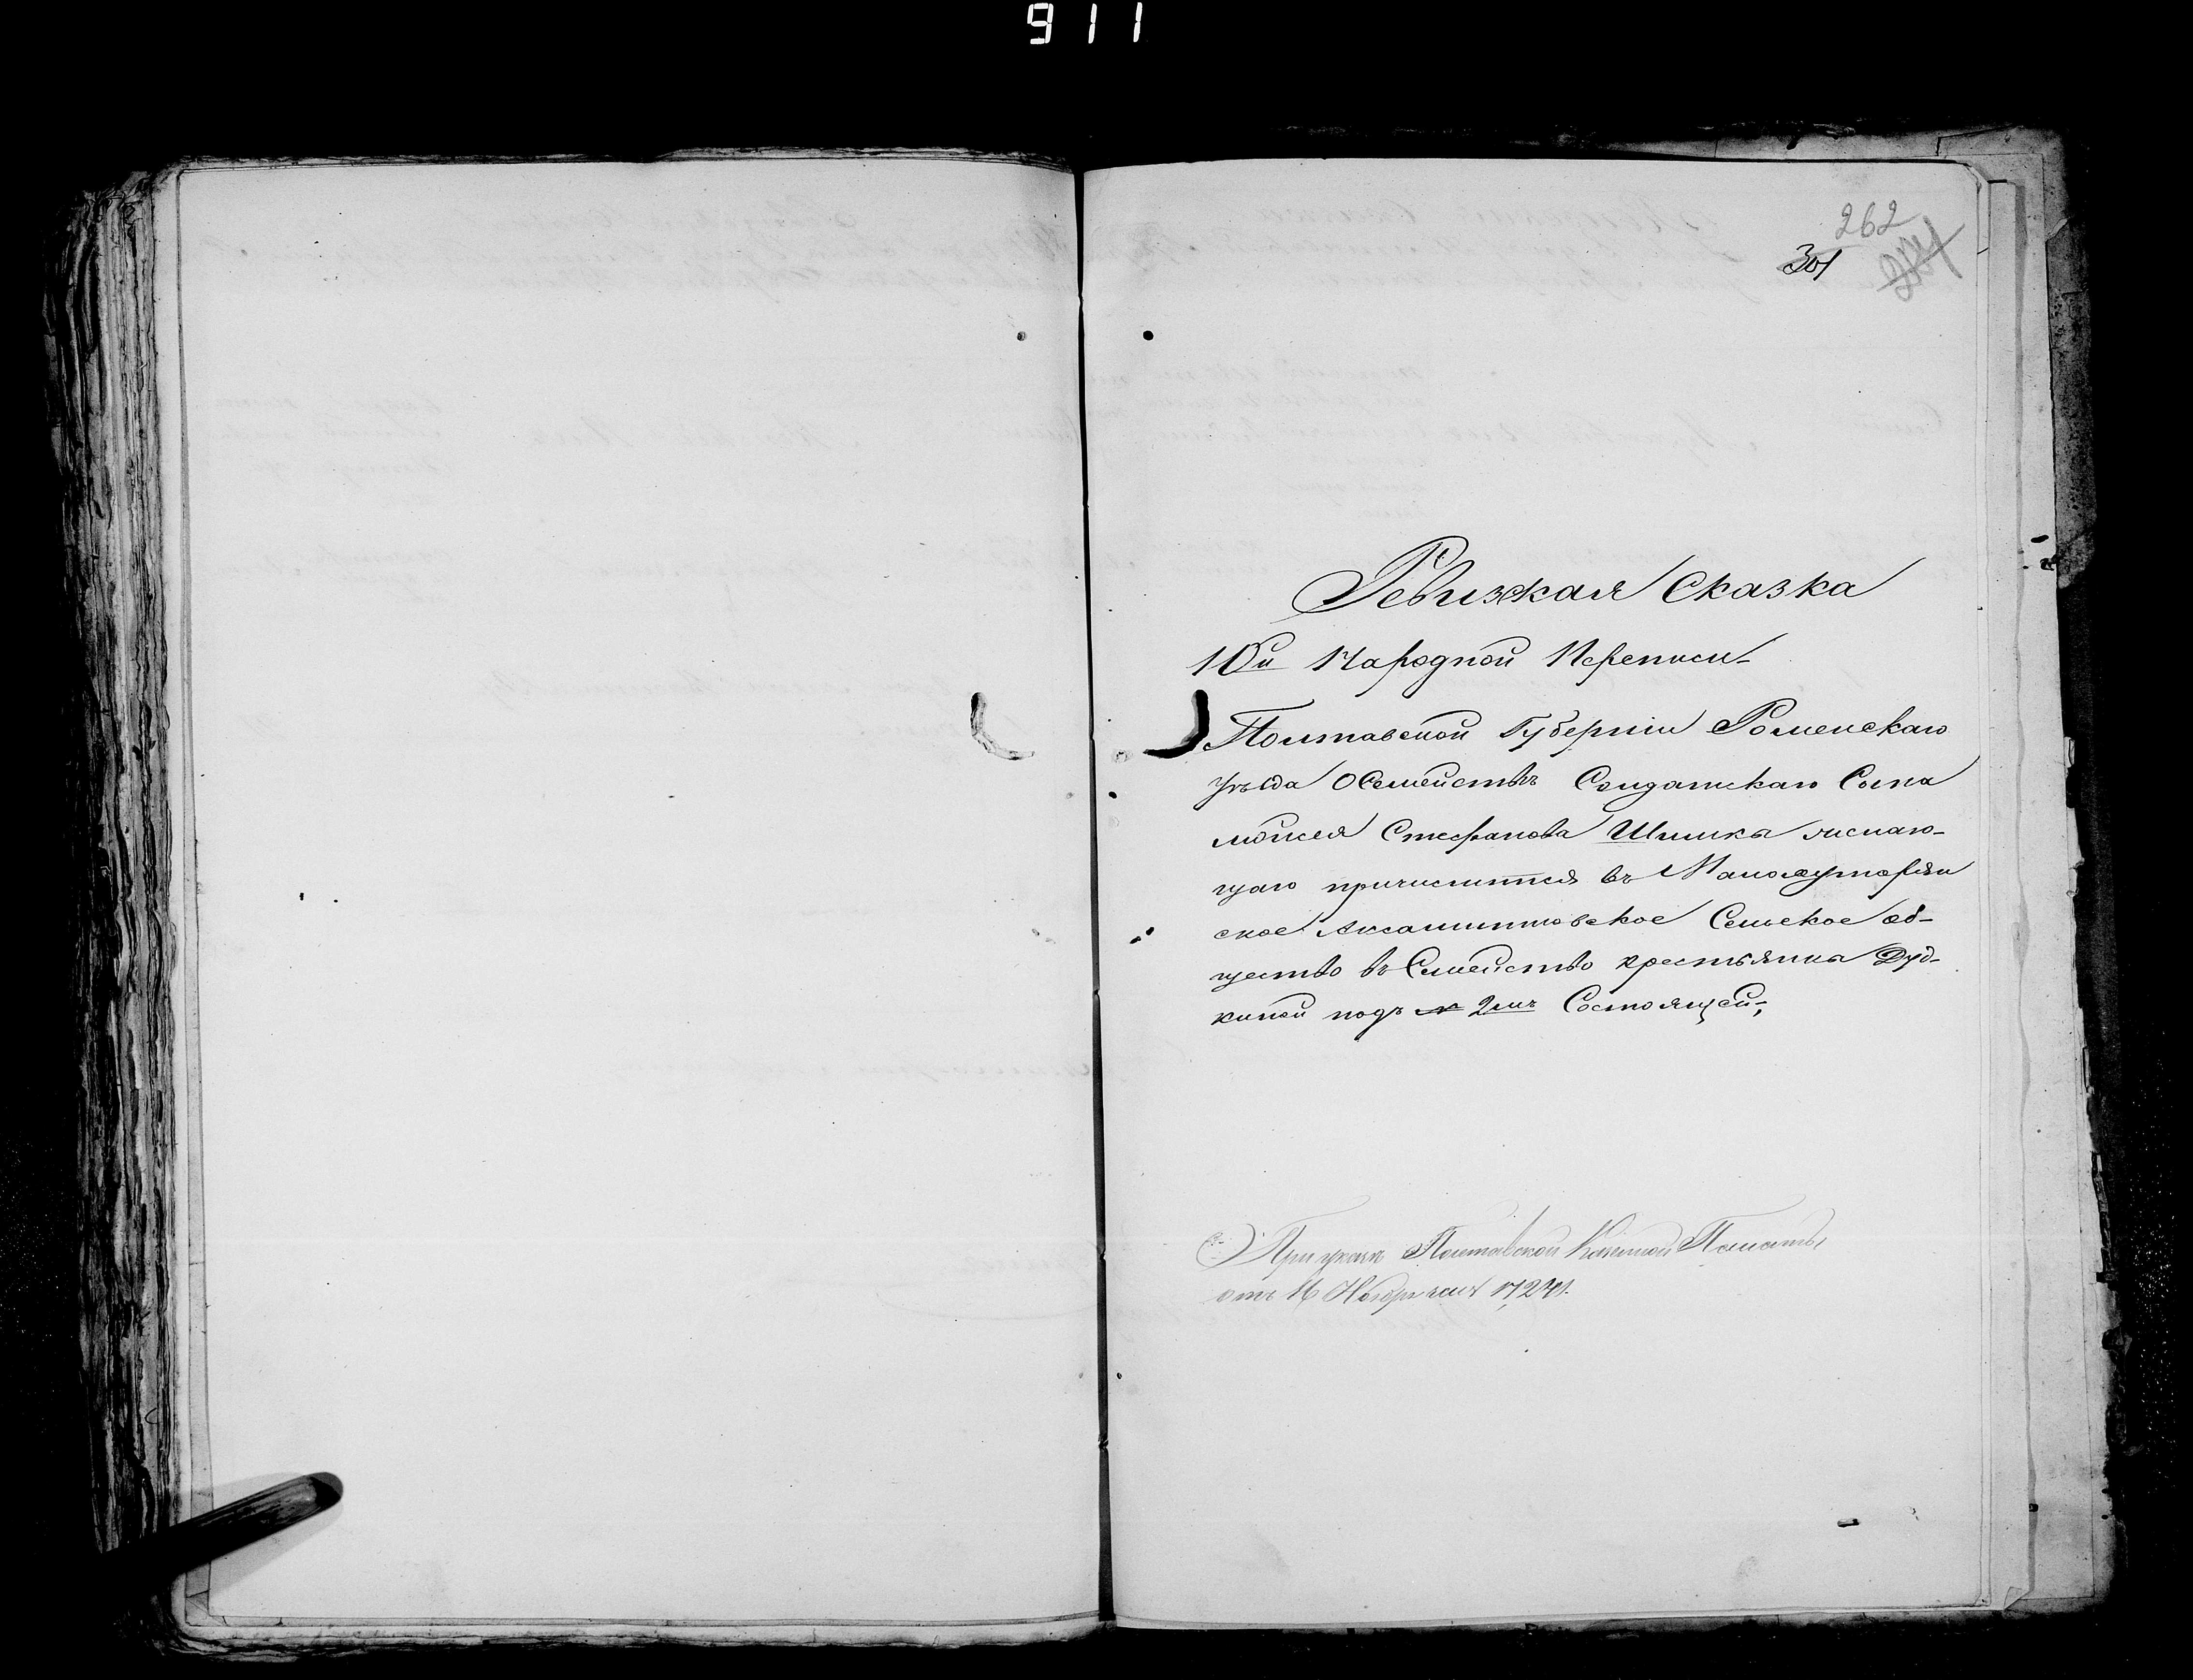 911
262
301
Ревизкая Сказка
10й Народной Переписи
Полтавской Губерніи Роменскаго
уѣзда О Семействѣ Солдатскаго Сына
Мойсея Стефанова Шлика желаю-
щаго причислится въ Малохуторян
ское Аксамитовское Сельское об-
щество въ Семейство крестьянина Дуд-
киной подъ № 2мъ Состоящей;
При указѣ Полтавской Казенной Палаты
отъ 16 Ноября